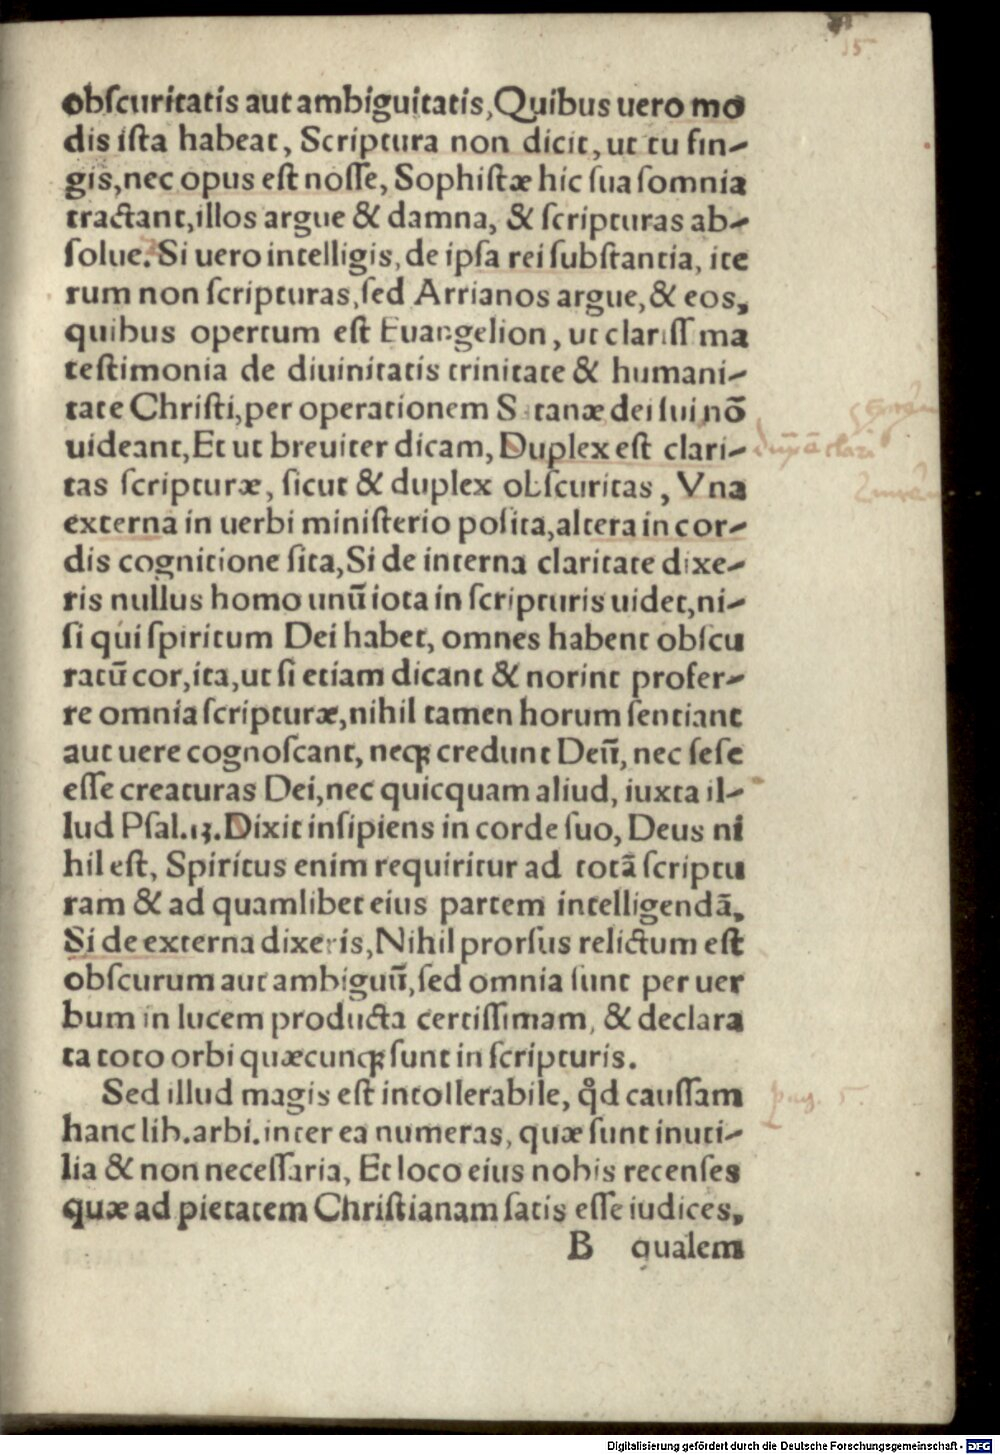 15
obſcuritatis aut ambiguitatis, Quibus uero mo
dis iſta habeat, Scriptura non dicit, ut tu fin-
gis, nec opus eſt noſſe, Sophiſtæ hic ſua ſomnia
tractant, illos argue & damna, & ſcripturas ab-
ſolue. Si uero intelligis, de ipſa rei ſubſtantia, ite
rum non ſcripturas, ſed Arrianos argue, & eos,
quibus opertum eſt Euangelion, ut clariſſima
teſtimonia de diuinitatis trinitate & humani-
tate Chriſti, per operationem Satanæ dei ſui nõ
uideant, Et ut breuiter dicam, Duplex eſt clari-
tas ſcripturæ, ſicut & duplex obſcuritas, Vna
externa in uerbi miniſterio poſita, altera in cor-
dis cognitione ſita, Si de interna claritate dixe-
ris nullus homo unũ iota in ſcripturis uidet, ni-
ſi qui ſpiritum Dei habet, omnes habent obſcu
ratũ cor, ita, ut ſi etiam dicant & norint profer-
re omnia ſcripturæ, nihil tamen horum ſentiant
aut uere cognoſcant, neqꝫ credunt Deũ, nec ſeſe
eſſe creaturas Dei, nec quicquam aliud, iuxta il-
lud Pſal. 13. Dixit inſipiens in corde ſuo, Deus ni
hil eſt, Spiritus enim requiritur ad totã ſcriptu
ram & ad quamlibet eius partem intelligendã,
Si de externa dixeris, Nihil prorſus relictum eſt
obſcurum aut ambiguũ, ſed omnia ſunt per uer
bum in lucem producta certiſſimam, & declara
ta toto orbi quæcunqꝫ ſunt in ſcripturis.
Sed illud magis eſt intollerabile, qd̉ cauſſam
hanc lib. arbi. inter ea numeras, quæ ſunt inuti-
lia & non neceſſaria, Et loco eius nobis recenſes
quæ ad pietatem Chriſtianam ſatis eſſe iudices,
B qualem
pag. 5.
Digitalisierung gefördert durch die Deutsche Forschungsgemeinschaft - DFG